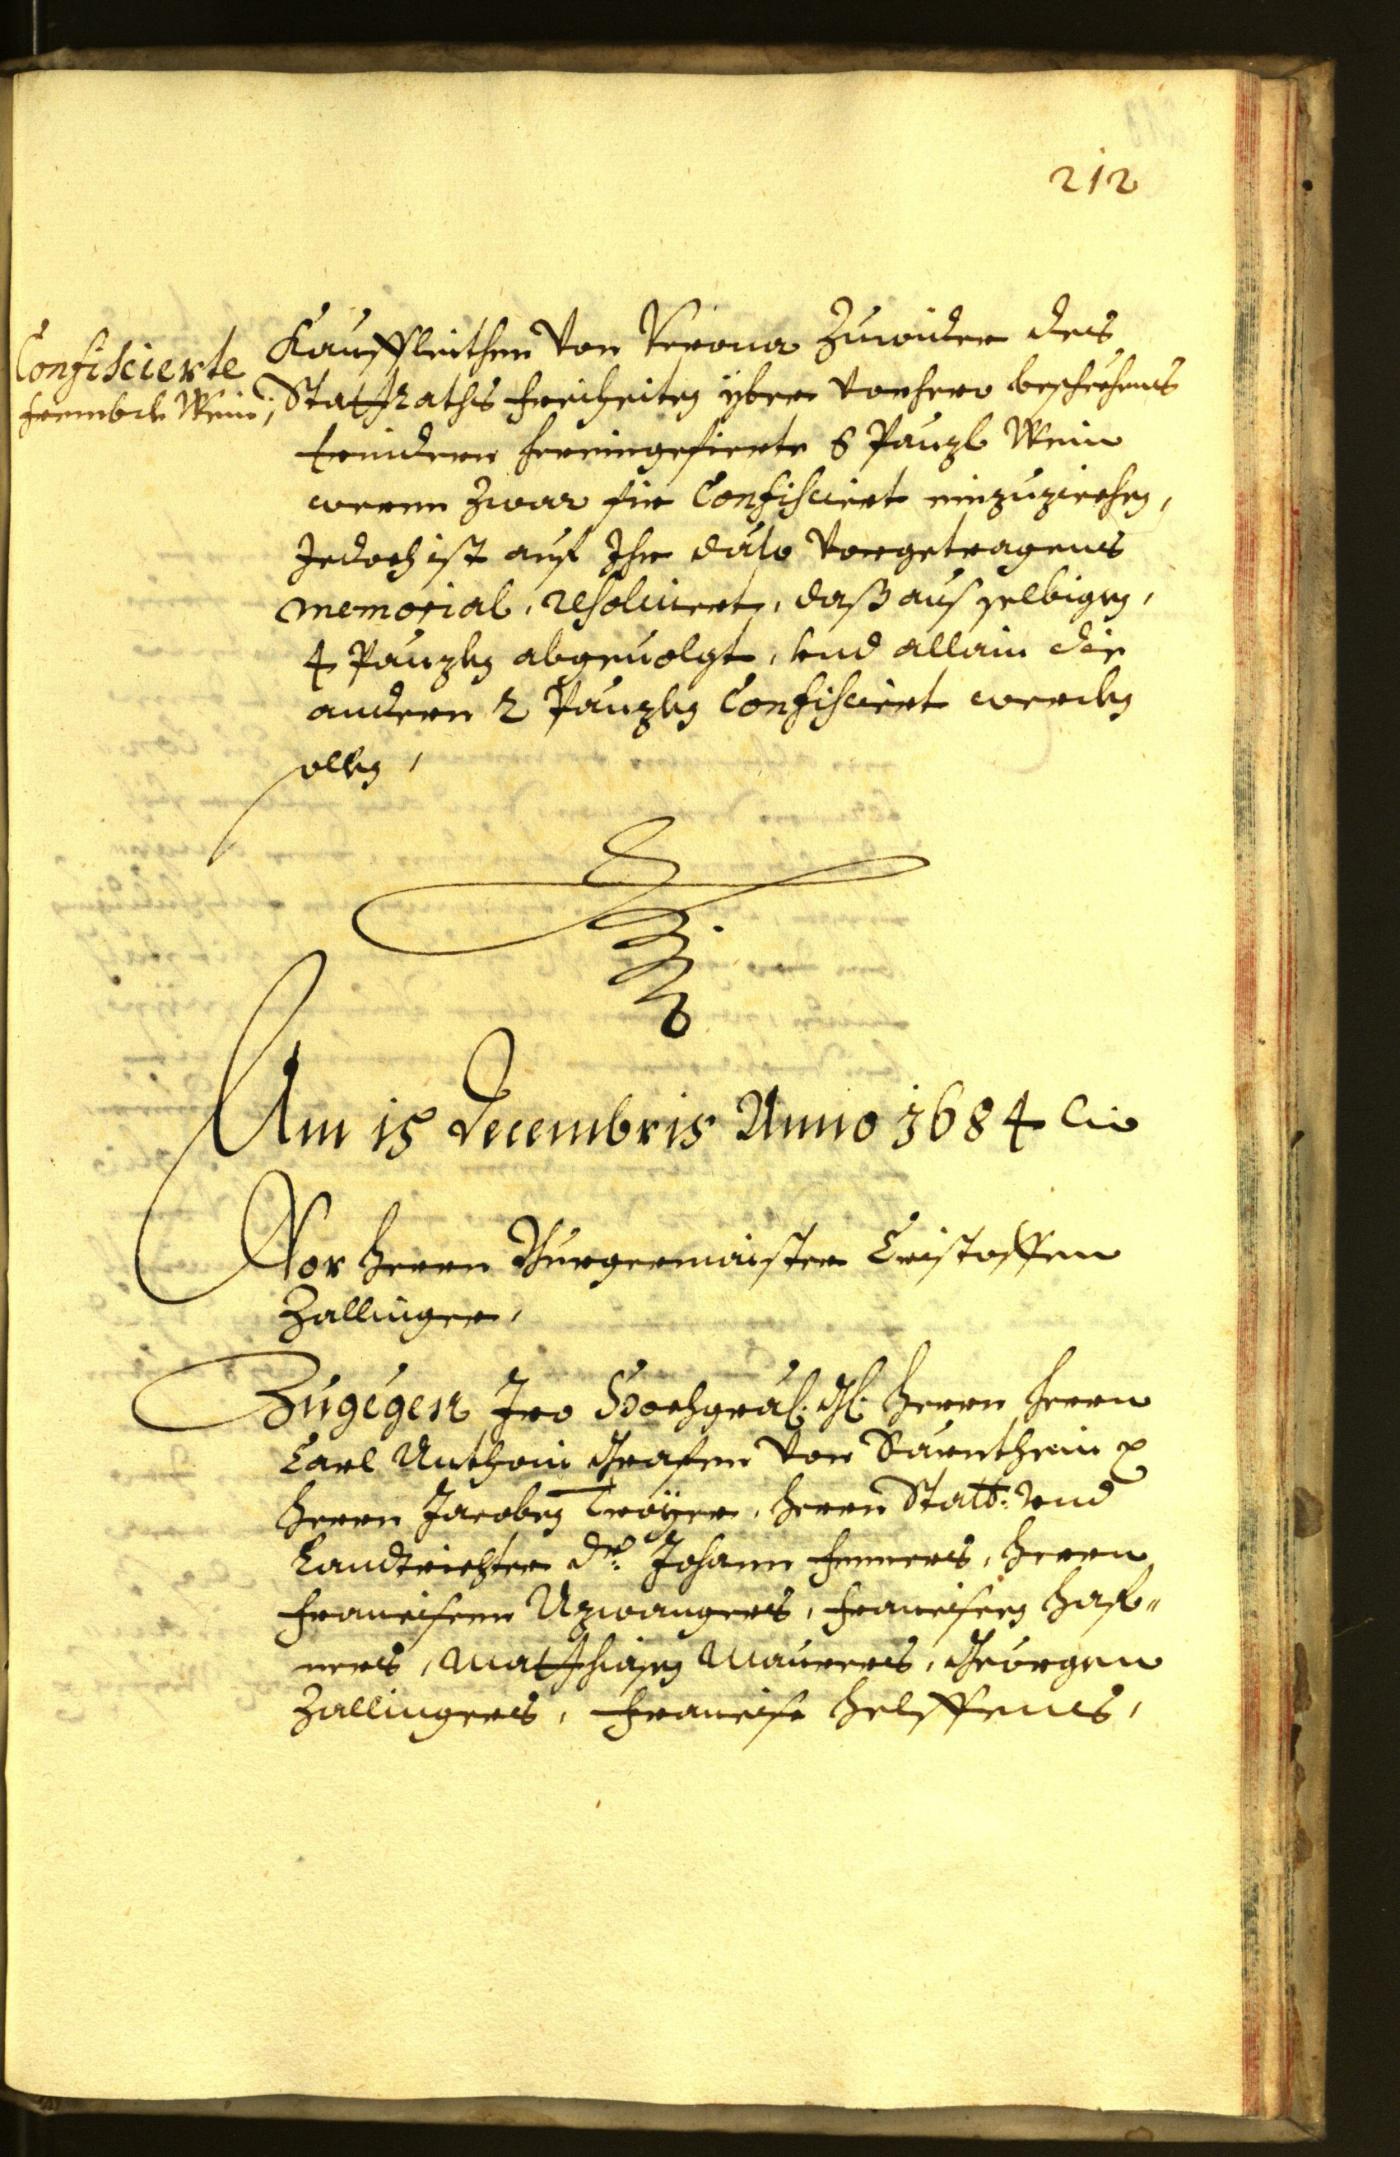 212
Confiscierte
frembde Wein,
Kauffleithen von Verona zuwider des
Stattraths freiheiten yber vorhero beschehens
hereingefierte 6 Panzl Wein
weren zwar für Confisciert einzuziechen,
Jedoch ist auf Ihr dato vorgetragenes
memorial, resolviert, daß aus selbigen,
4 Panzlen abgeuolgt, vnd allain die
andern 2 Panzlen Confisciert werden
sollen,
Am 15 Decembris Anno 1684
Vor Herrn Burgermaister Cristoffen
Zallinger,
Zugegen Iro Hochgräf. Gl. Herrn Herrn
Carl Anthoin Grafen von Sarnthein
Herrn Jacoben Troyer, Herrn Statt: vnd
Landtrichter Dr. Johann Fenners, Herrn
Francisen Azwangers, Francisien Haf„
ners, Matthiasen Maurers, Georgen
Zallingers, Francise Helffens,